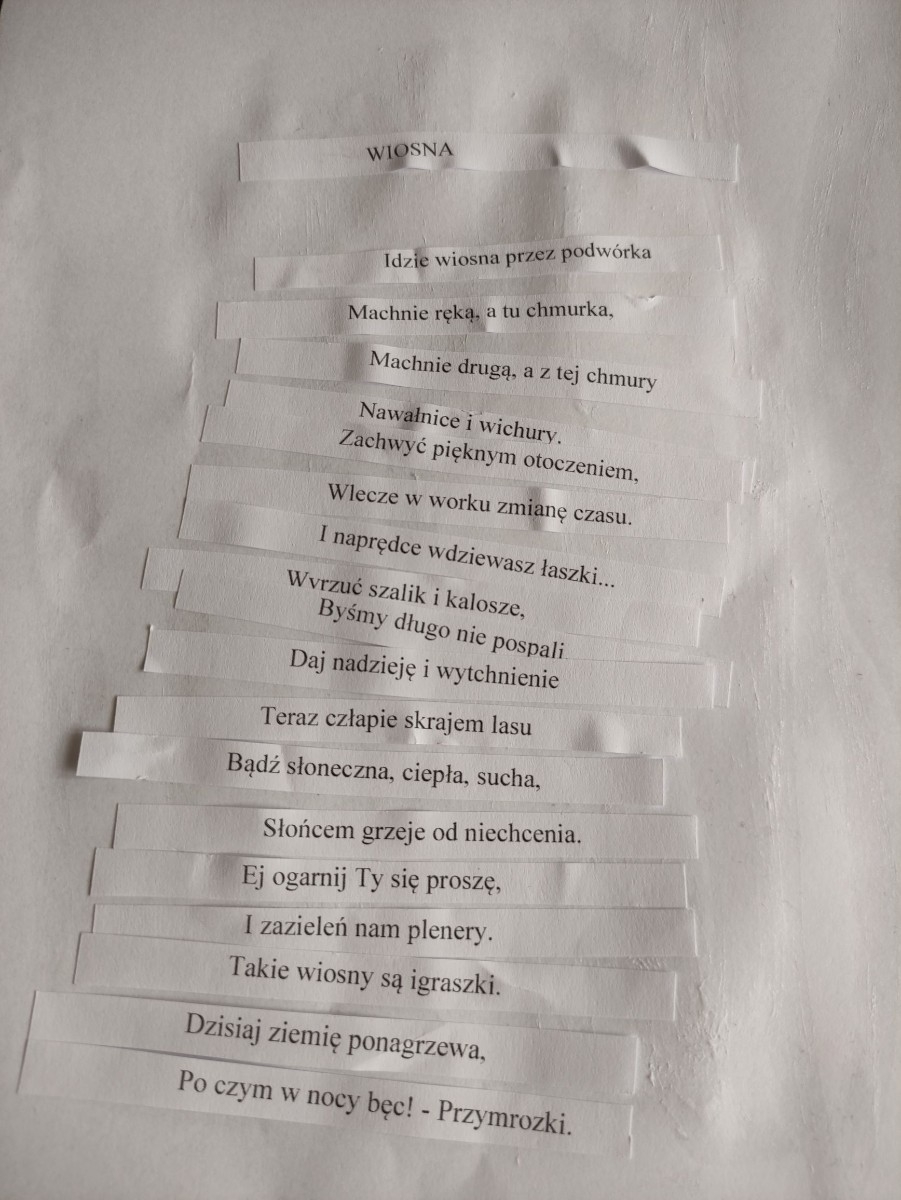 WIOSNA
Idzie wiosna przez podwórka
Machnie ręką, a tu chmurka,
Machnie drugą, a z tej chmury
Nawałnice i wichury.
Zachwyć pięknym otoczeniem,
Wlecze w worku zmianę czasu.
I naprędce wdziewasz łaszki...
Wyrzuć szalik i kalosze,
Byśmy długo nie pospali
Daj nadzieję i wytchnienie
Teraz człapie skrajem lasu
Bądź słoneczna, ciepła, sucha,
Słońcem grzeje od niechcenia.
Ej ogarnij Ty się proszę,
I zazieleń nam plenery.
Takie wiosny są igraszki.
Dzisiaj ziemię ponagrzewa,
Po czym w nocy bęc! - Przymrozki.